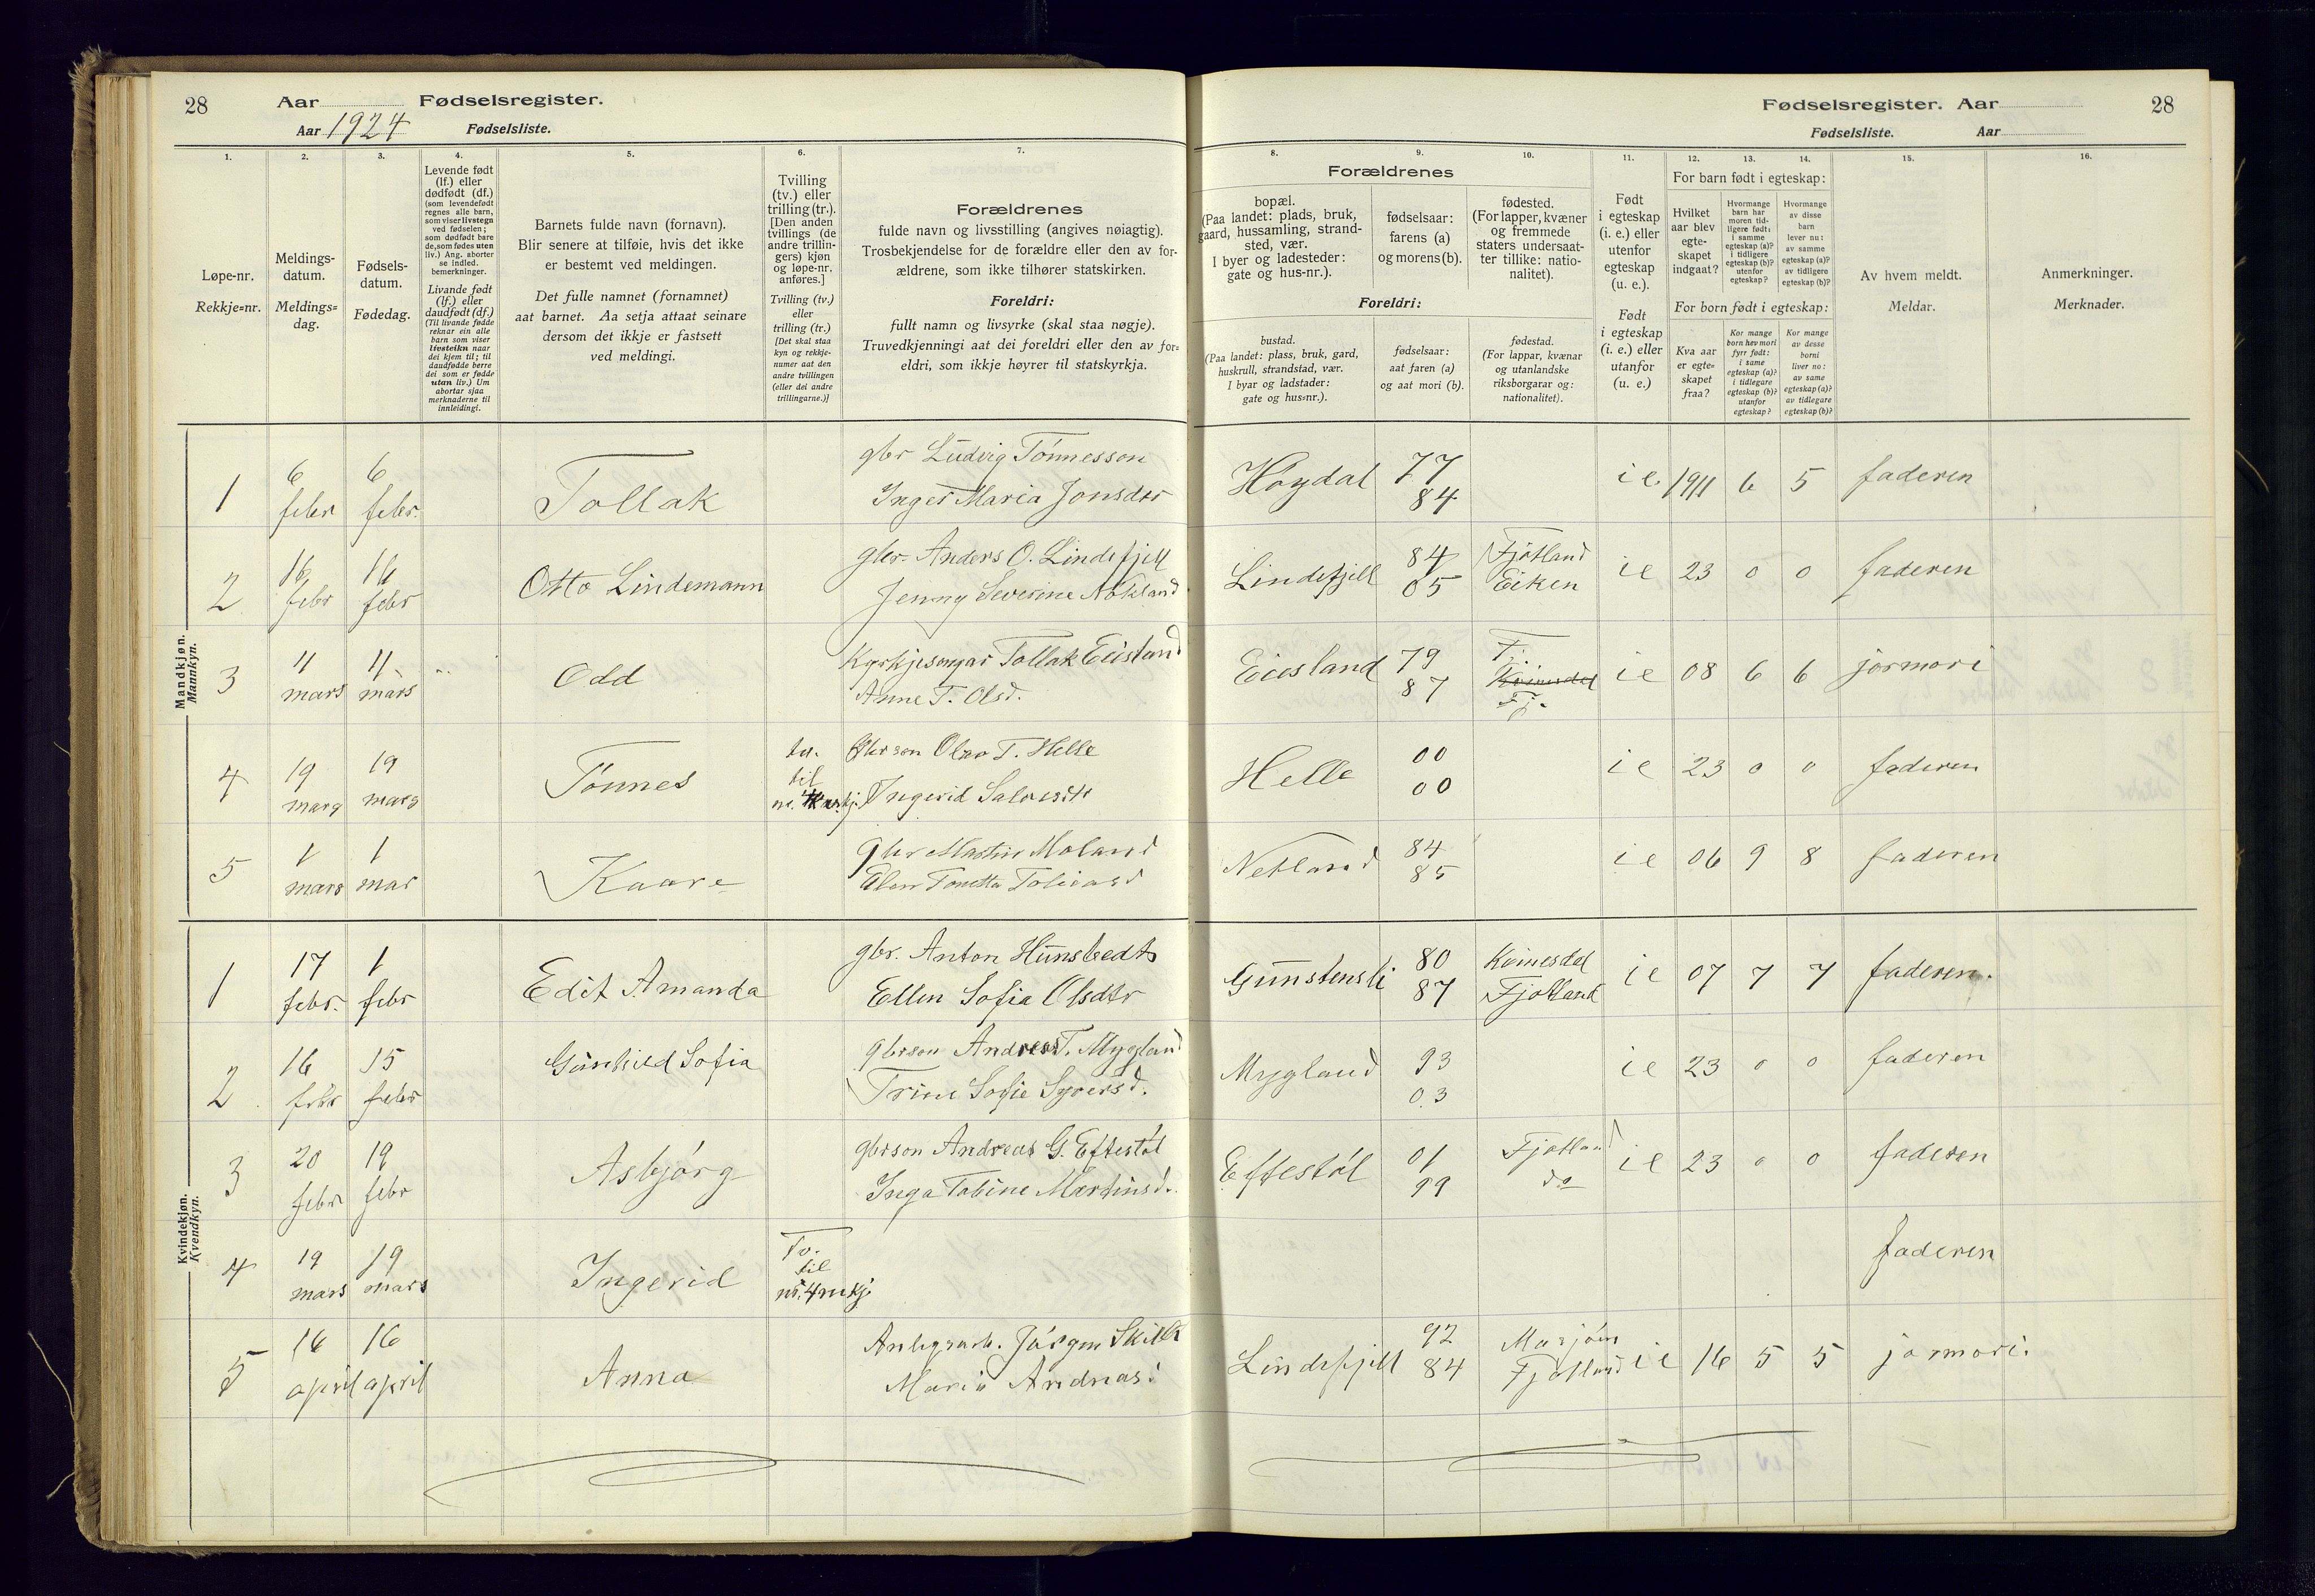 28 Aar Fødselsregister.
Aar 1924 Fødselsliste.
Fødselsregister. Aar 28
Fødselsliste. Aar
1. 2. 3. 4. 5. 6. 7.
8. 9. 10. 11. 12. 13. 14. 15. 16.
Løpe-nr.
Rekkje=nr.
Meldings-
datum.
Meldings=
dag.
Fødsels-
datum.
Fødedag.
Levende født
(lf.) eller
dødfødt (df.)
(som levendefødt
regnes alle barn,
som viser livstegn
ved fødselen;
som dødfødt bare
de, som fødes uten
liv.) Ang. aborter
se indled.
bemerkninger.
Livande født
(lf.) eller
daudfødt (df.)
(Til livande fødde
reknar ein alle
barn som viser
livsteikn naar
dei kjem til; til
daudfødde berre
dei som er fødde
utan liv.) Um
abortar sjaa
merknaderne til
innleidingi.
Barnets fulde navn (fornavn).
Blir senere at tilføie, hvis det ikke
er bestemt ved meldingen.
Det fulle namnet (fornamnet)
aat barnet. Aa setja attaat seinare
dersom det ikkje er fastsett
ved meldingi.
Tvilling
(tv.) eller
trilling (tr.).
[Den anden
tvillings (de
andre trillin-
gers) kjøn
og løpe-nr.
anføres.]
Tvilling (tv.)
eller
trilling (tr.)
[Det skal staa
kyn og rekkje-
numer aat den
andre tvillingen
(eller dei andre
trillingarne.)]
Forældrenes
fulde navn og livsstilling (angives nøiagtig).
Trosbekjendelse for de forældre eller den av for-
ældrene, som ikke tilhører statskirken.
Foreldri:
fullt namn og livsyrke (skal staa nøgje).
Truvedkjenningi aat dei foreldri eller den av for=
eldri, som ikkje høyrer til statskyrkja.
Forældrenes
bopæl.
(Paa landet: plads, bruk,
gaard, hussamling, strand-
sted, vær.
I byer og ladesteder:
gate og hus-nr.).
fødselsaar:
farens (a)
og morens (b).
fødested.
(For lapper, kvæner
og fremmede
staters undersaat-
ter tillike: natio-
nalitet).
Foreldri:
bustad.
(Paa landet: plass, bruk, gard,
huskrull, strandstad, vær.
I byar og ladstader:
gate og hus=nr.).
fødselsaar:
aat faren (a)
og aat mori (b).
fødestad.
(For lappar, kvænar
og utanlandske
riksborgarar og:
nationalitet).
Født
i egteskap
(i. e.) eller
utenfor
egteskap
(u. e.).
Født
i egteskap
(i. e.) eller
utanfor
(u. e.)
For barn født i egteskap:
Hvilket
aar blev
egte-
skapet
indgaat?
Hvormange
barn har
moren tid-
ligere født:
i samme
egteskap (a)?
i tidligere
egteskap (b)?
utenfor
egteskap?
Hvormange
av disse
barn
lever nu:
av samme
egteskap (a)?
av tidligere
egteskap (b)?
For born født i egteskap:
Kva aar
er egte=
skapet
fraa?
Kor mange
born hev mori
fyrr født:
i same
egteskap (a)?
i tidlegare
egteskap (b)?
utanfor
egteskap?
Kor mange
av desse
borni
liver no:
av same
egteskap (a)?
av tidlegare
egteskap (b)?
Av hvem meldt.
Meldar.
Anmerkninger.
Merknader.
Mandkjøn.
Mannkyn.
1 6 febr 6 febr. Tollak gbr Ludvig Tønnesson
Inger Maria Jonsdtr
Høydal 77 84 i e 1911 6 5 faderen
2 16 febr 16 febr Otto Lindemann gbr. Anders O. Lindefjell
Jenny Severine
Lindefjell 84 05 Fjotland Eiken i e 23 0 0 faderen
3 11 mars 11 mars Odd Kyrkjesongar Tollak Eiesland
Anne T. Olsd.
Eiesland 79 87 F. Kvinesdal Fj. i e 08 6 6 jormori
4 19 mars 19 mars Tønnes tv. til nr. 4 kvkj. Gbrson Olav T. Helle
Ingerid
Helle 00 00 i e 23 0 0 faderen
5 1 mars 1 mar Kaare gbr Martin Moland
Elen Tonetta
Netland 84 85 i e 06 9 8 faderen
Kvindekjøn.
Kvendkyn.
1 17 febr. 1 febr Edit Amanda gbr. Anton Hunsbedt
Ellen Sofia Olsdtr
80 87 Kvinesdal Fjotland i e 07 7 7 faderen.
2 16 febr 15 febr Gunhild Sofia gbrson Andreas T. Mygland
Trine Sofie Syversd.
Mygland 93 03 i e 23 0 0 faderen
3 20 febr 19 febr Asbjørg gbrson Andreas G. Eftestøl
Inga Tobine Martinsd.
Eftestøl 01 99 Fjotland do i e 23 0 0 faderen
4 19 mars 19 mars Ingerid Tv. til nr. 4 mkj.
faderen
5 16 april 16 april Anna Jørgen
Marie Andreasd
Lindefjell 92 84 Fjotland i e 16 5 5 jormori.